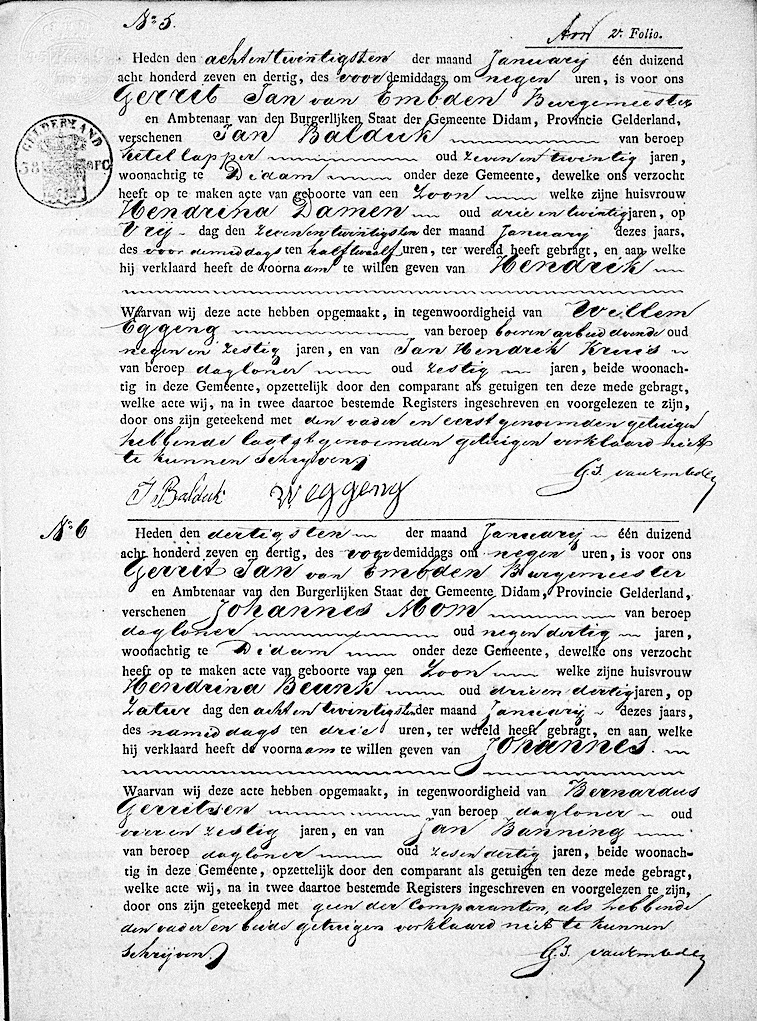 No. 5.
2e. Folio.
Heden den achtentwintigsten der maand Januarij één duizend
acht honderd zeven en dertig, des voordemiddags om negen uren, is voor ons
Gerrit Jan van Embden Burgemeester
en Ambtenaar van den Burgerlijken Staat der Gemeente Didam, Provincie Gelderland,
verschenen Jan Balduk van beroep
ketellapper oud zevenentwintig jaren,
GELDERLAND
woonachtig te Didam onder deze Gemeente, dewelke ons verzocht
heeft op te maken acte van geboorte van een Zoon welke zijne huisvrouw
Hendrina Damen oud drieentwintig jaren, op
Vrydag den zevenentwintigsten der maand Januarij dezes jaars,
des voordemiddags ten half twaalf uren, ter wereld heeft gebragt, en aan welke
hij verklaard heeft de voornaam te willen geven van Hendrik
Waarvan wij deze acte hebben opgemaakt, in tegenwoordigheid van Willem
Eggeng van beroep boeren arbeid doende oud
negenenzestig jaren, en van Jan Hendrik
van beroep dagloner oud zestig jaren, beide woonach-
tig in deze Gemeente, opzettelijk door den comparant als getuigen ten deze mede gebragt,
welke acte wij, na in twee daartoe bestemde Registers ingeschreven en voorgelezen te zijn,
door ons zijn geteekend met den vader en eerstgenoemden getuigen
hebbende laatstgenoemden getuigen verklaard niet
te kunnen schrijven
G.J. van Embden
J. Balduk W eggeng
No. 6
Heden den dertigsten der maand Januarij één duizend
acht honderd zeven en dertig, des voordemiddags om negen uren, is voor ons
Gerrit Jan van Embden Burgemeester
en Ambtenaar van den Burgerlijken Staat der Gemeente Didam, Provincie Gelderland,
verschenen Johannes Mom van beroep
dagloner oud negendertig jaren,
woonachtig te Didam onder deze Gemeente, dewelke ons verzocht
heeft op te maken acte van geboorte van een Zoon welke zijne huisvrouw
Hendrina Beunk oud drieendertig jaren, op
Zaturdag den achtentwintigsten der maand Januarij dezes jaars,
des namiddags ten drie uren, ter wereld heeft gebragt, en aan welke
hij verklaard heeft de voornaam te willen geven van Johannes.
Waarvan wij deze acte hebben opgemaakt, in tegenwoordigheid van Bernardus
Gerritsen van beroep dagloner oud
vierenzestig jaren, en van Jan Banning
van beroep dagloner oud zesendertig jaren, beide woonach-
tig in deze Gemeente, opzettelijk door den comparant als getuigen ten deze mede gebragt,
welke acte wij, na in twee daartoe bestemde Registers ingeschreven en voorgelezen te zijn,
door ons zijn geteekend met geen der Comparanten, als hebbende
den vader en beide getuigen verklaard niet te kunnen
schrijven
G.J. van Embden